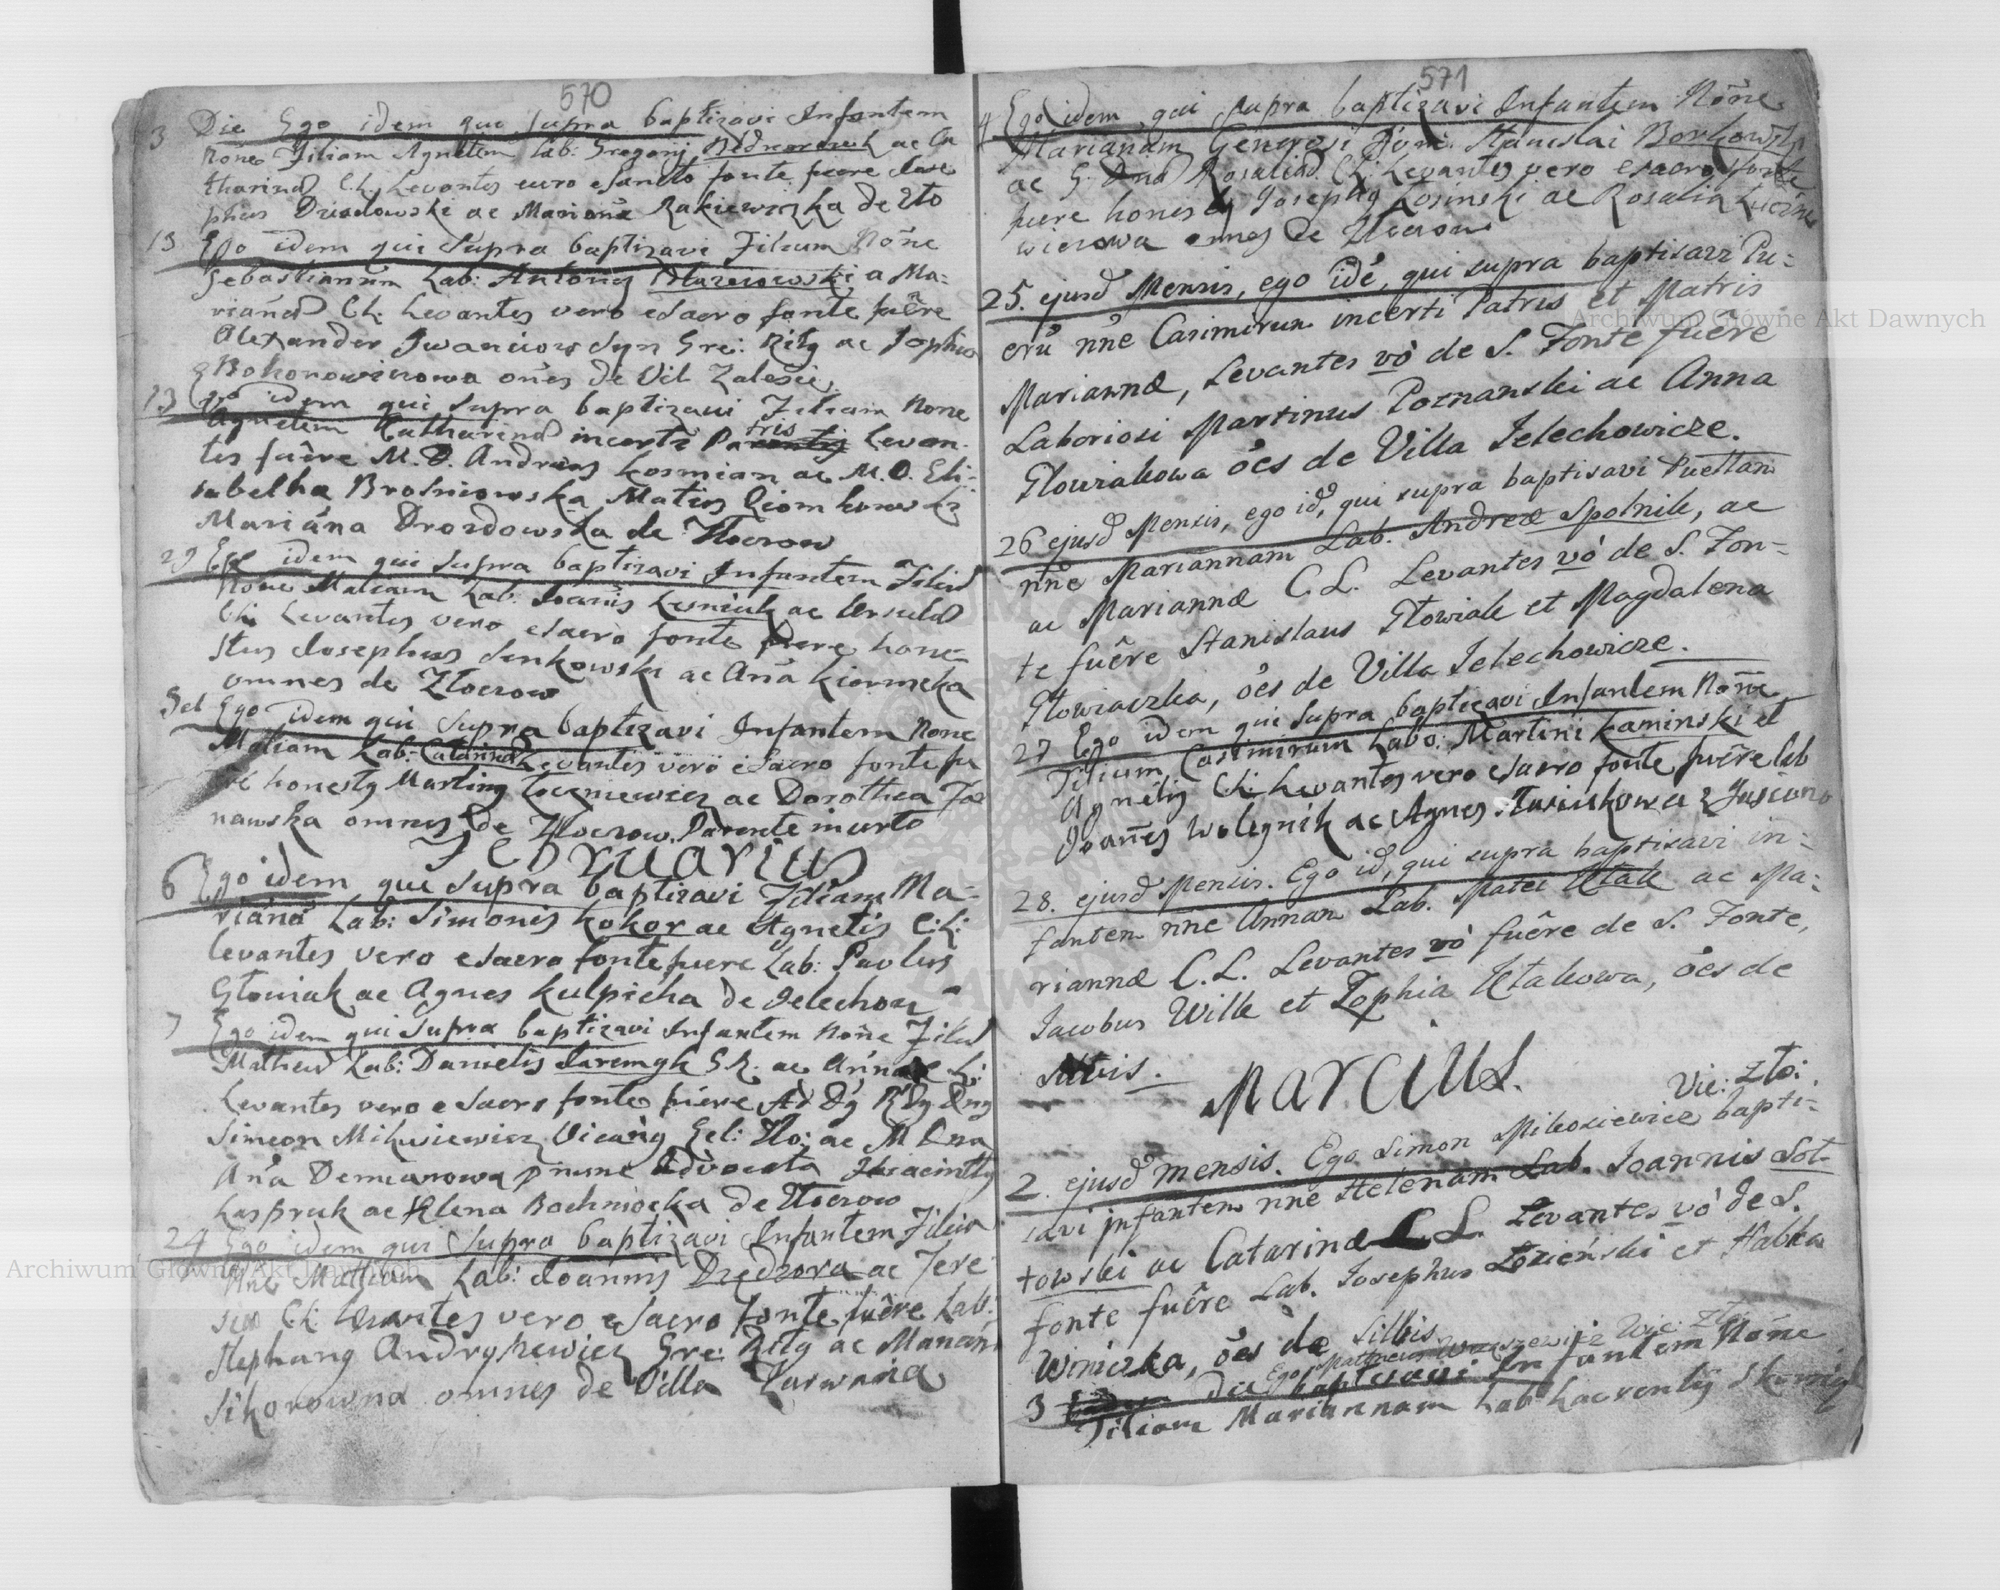 570
3 Die Ego idem qui supra baptizavi Infantem
None Filiam Agnetem Lab: Gregorij ac Ca
tharina C.L. Levantes vero e Sancto fonte fuere Jose
phus Dziadowski ac Mariana Rakiewiczka de Zlo
13 Ego idem qui Supra baptizavi Filium Noñe
Sebastianum Lab: Antonij a Ma-
riañæ CL. Levantes vero e Sacro fonte fuêre
Alexander Iwanciow Syn Gre: Ritg ac Sophia
Bohonowiczowa oñes de Vil Zalesie
13 Ego idem qui Supra baptizavi Filiam None
Agnetem Catharinæ incerti Patris Levan-
tes fuêre M. D. Andreas Kosmian ac M. D. Eli-
sabetha Brosniowska Matias Ziomkowski
Mariána Drozdowska de Złoczow
29 Ego idem qui Supra baptizavi Infantem Filiã
None Matiam Lab: Joanis Lesniuk ac Ursulæ
CL: Levantes vero e Sacro fonte fuere hone-
stus Josephus Senkowski ac Aña
omnes de Złoczow
Ego idem qui Supra baptizavi Infantem None
Matiam Lab: Catarinæ Levantes vero e Sacro fonte fu
ere honestg Marting ac Dorothea
nawska omnes de Złoczow. Parente incerto
Februarius
6 Ego idem qui Supra baptizavi Filiam Ma-
riáná Lab: Simonis Kokor ac Agnetis C:L:
Levantes vero e Sacro fonte fuere Lab: Pavlus
Głowiak ac Agnes Kulpicha de Jelechow
7 Ego idem qui Supra baptizavi Infantem Noñe Filiũ
Matheũ Lab: Danielis Jaremyk G.R. ac Añnæ L:
Levantes vero e Sacro fonte fuere
Simeon Mikusiewicz Vicarig Ecl: Zlo: ac M Dna
Aña Demianowa p nunc Advocata Hiacintg
Kaspruk ac Helena Bochniocka de Złoczow
24 Ego idem qui Supra baptizavi Infantem Filiã
Nñe Mathiam Lab: Joannis Dzedzora ac Tere
siæ CL: Levantes vero e Sacro fonte fuêre Lab:
Stephang Andryszewicz Gre: Ritg ac Marian
Sikorowna omnes de Villa Zarwania
571
4 Ego idem qui supra baptizavi Infantem Nõne
Marianam Generosi Domi: Stanislai Borkowski
ac G. Dna Rosaliæ CL: Levantes vero e sacro fonte
fuere honestg Josephg Losinski ac Rosalia
wiczowa omnes de Złoczow
25. ejusd̃ Mensis, ego idẽ, qui supra baptisavi Pu-
erũ nñe Casimirum incerti Patris et Matris
Mariannæ, Levantes vò de S. Fonte fuêre
Laboriosi Martinus Poznanski ac Anna
Głowiakowa ões de Villa Jelechowicze.
26 ejusd̃ Mensis, ego id̃, qui supra baptisavi Puellam
nñe Mariannam Lab. Andreæ Spolnik, ac
ac Mariannæ C.L. Levantes vò de S. Fon-
te fuêre Stanislaus Głowiak et Magdalena
Głowiaczka, ões de Villa Jelechowicze.
27 Ego idem qui Supra baptizavi Infantem Noñe
Filium Casimirum Labo: Martini Kaminski et
Agnetis CL: Levantes vero e Sacro fonte fuêre Lab
Joañes Wolegnik ac Agnes
28. ejusd̃ Mensis. Ego id̃, qui supra baptisavi in-
fantem nñe Annam Lab. Matei Ktak ac Ma-
riannæ C.L. Levantes vò fuêre de S. Fonte,
Jacobus Wilk et Zophia Ktakowa, ões de
Marcius.
Vic: Zło:
2. ejusd̃ Mensis. Ego Simon Mikosiewicz bapti-
savi infantem nñe Helenam Lab. Joannis Sot-
towski ac Catarinæ C.L. Levantes vò de S.
fonte fuêre Lab. Josephus Lozieński et Habka
Winiczka, ões de Silbis
Ego Vic: Zło
3 die baptisavi Infantem Noñe
Filiam Mariannam Lab Laurentij
Archiwum Główne Akt Dawnych
Archiwum Główne Akt Dawnych